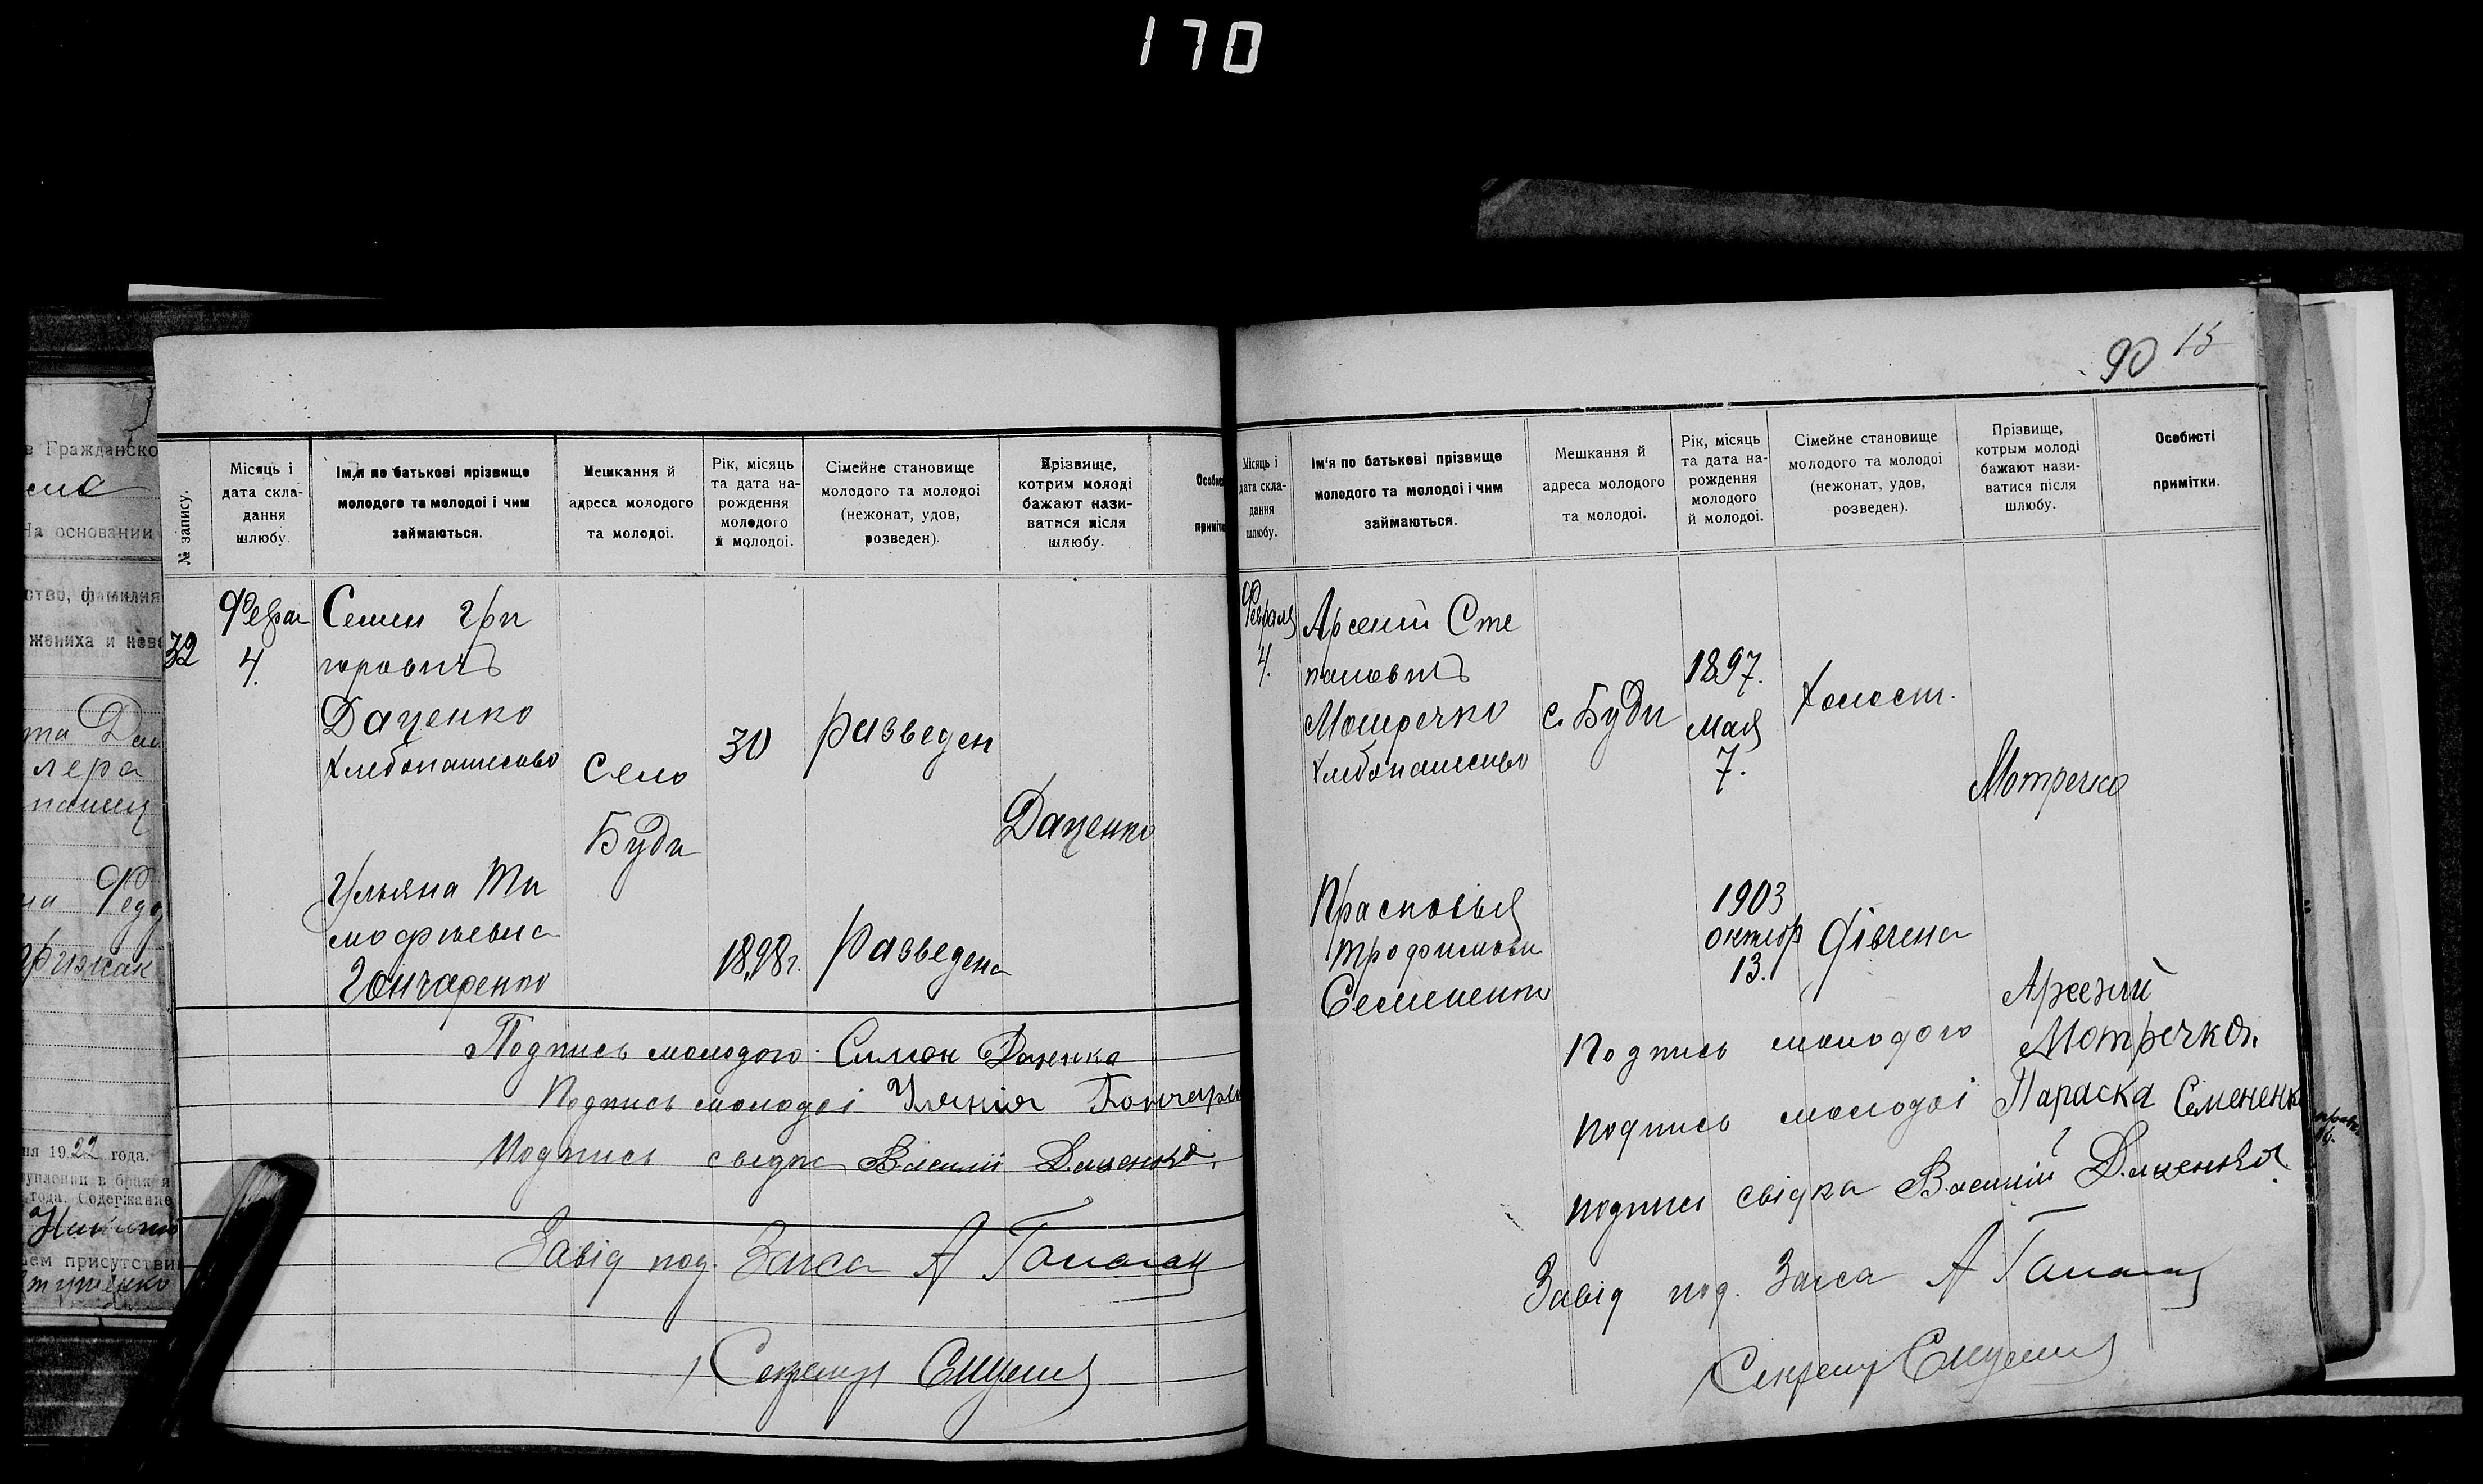 170
в Гражданско
На основании
ство, фамилия
жениха и неве
лера
ня 1922 года.
ем присутстви
№ запису.
Місяць і
дата скла-
дання
шлюбу.
Ім'я по батькові прізвище
молодого та молодоі і чим
займаються.
Мешкання й
адреса молодого
та молодоі.
Рік, місяць
та дата на-
рождення
молодого
й молодоі.
Сімейне становище
молодого та молодоі
(нежонат, удов,
розведен).
Прізвище,
котрим молоді
бажают нази-
ватися після
шлюбу.
32
Феврал
4.
Семен Гри
горович
Даценко
Хлебопашество
Село
Буди
30
разведен
Даценко
Ульяна Ти
мофиевна
Гончаренко
1898 г.
разведена
Подпись молодого Симон Даценко
Подпись молодоі Уляния Гончаре
Подпись свидка Василий Даценко.
Завід под. Загса А
Секретар
90 15
Місяць і
дата скла-
дання
шлюбу.
Ім'я по батькові прізвище
молодого та молодоі і чим
займаються.
Мешкання й
адреса молодого
та молодоі.
Рік, місяць
та дата на-
рождення
молодого
й молодоі.
Сімейне становище
молодого та молодоі
(нежонат, удов,
розведен).
Прізвище,
котрым молоді
бажают нази-
ватися після
шлюбу.
Особисті
примітки.
Февраля
4.
Арсений Сте
панович
Мотречко
Хлебопашество
с. Буди
1897.
мая
7.
Холост.
Мотречко
Прасковья
Трофимовн
Семененко
1903
октяб
13.
дівчена
Подпись молодого Арсений
Мотречко.
Подпись молодоі Параска Семененк
подпись свідка Василий Даценко.
Завід под. Загса А
Секретар